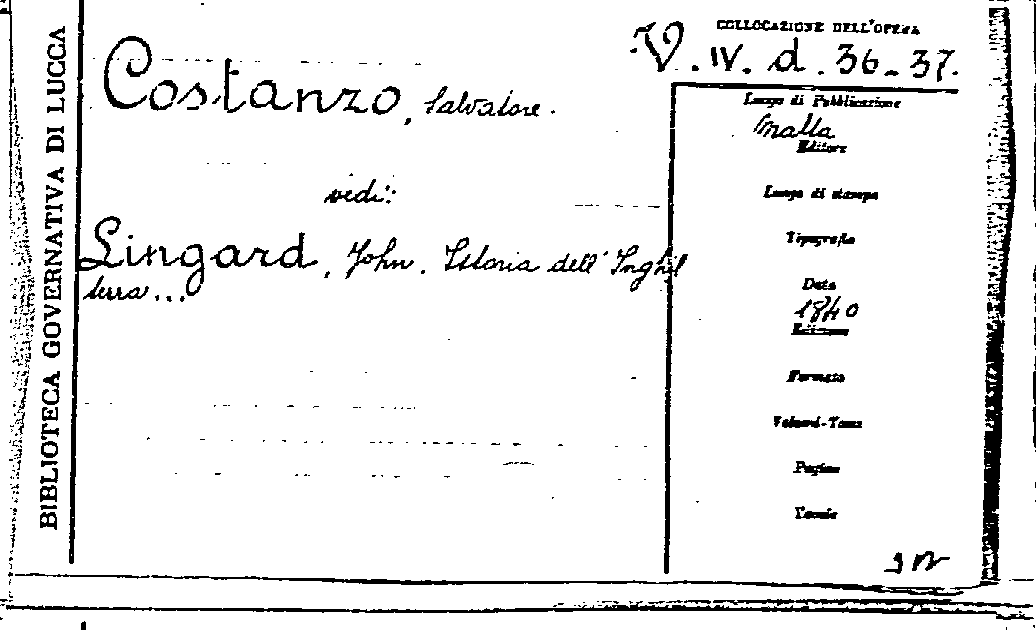 BIBLIOTECA GOVERNATIVA DI LUCCA
COLLOCAZIONE DELL'OPERA
V. IV. d. 36-37.
Costanzo, Salvatore.
vedi:
Lingard, John. Istoria dell'Inghil
terra...
Luogo di Pubblicazione
Malta
Editore
Luogo di stampa
Tipografia
Data
1840
Edizione
Formato
Volumi-Tomi
Pagine
Tavole